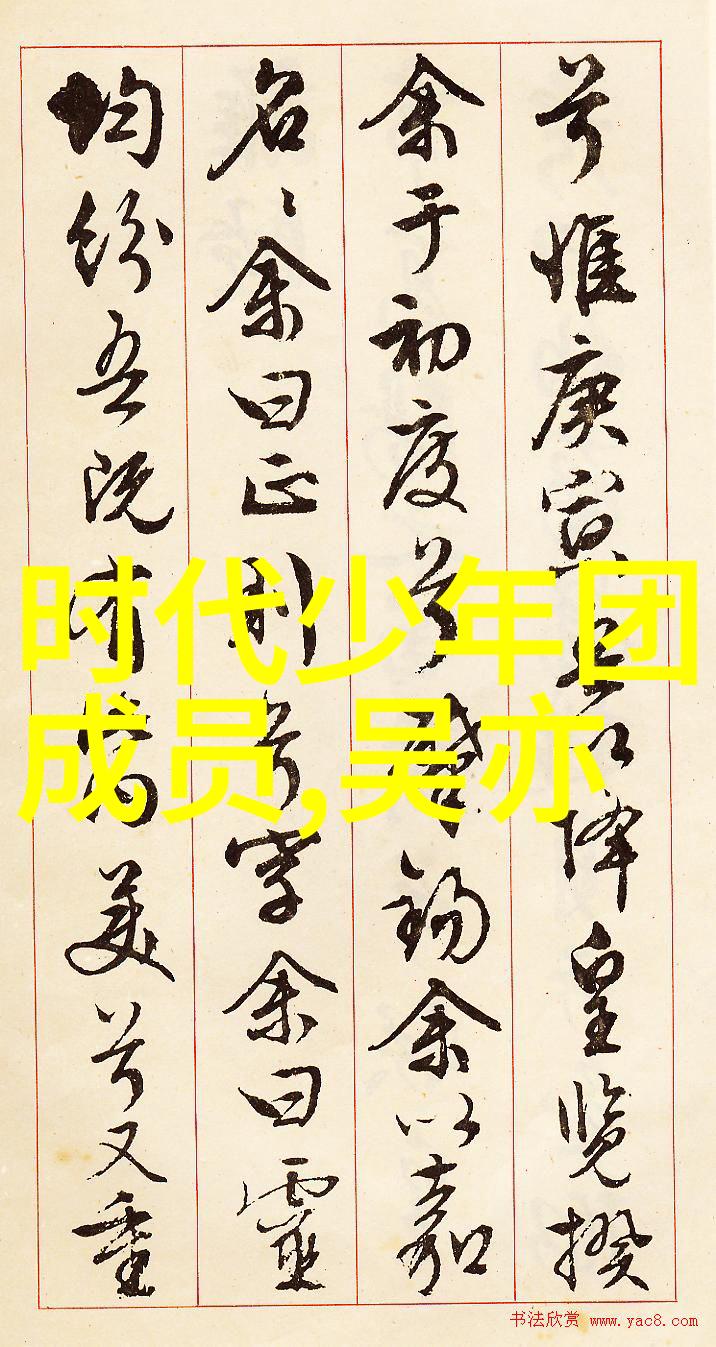 兮惟庚寅吾以降皇覽揆
余于初度兮肇錫余以嘉
名〻余曰正則兮字余曰靈
均紛吾既有此內美兮又重
时代少年团
成员,吴亦
书法欣赏 www.yac8.com